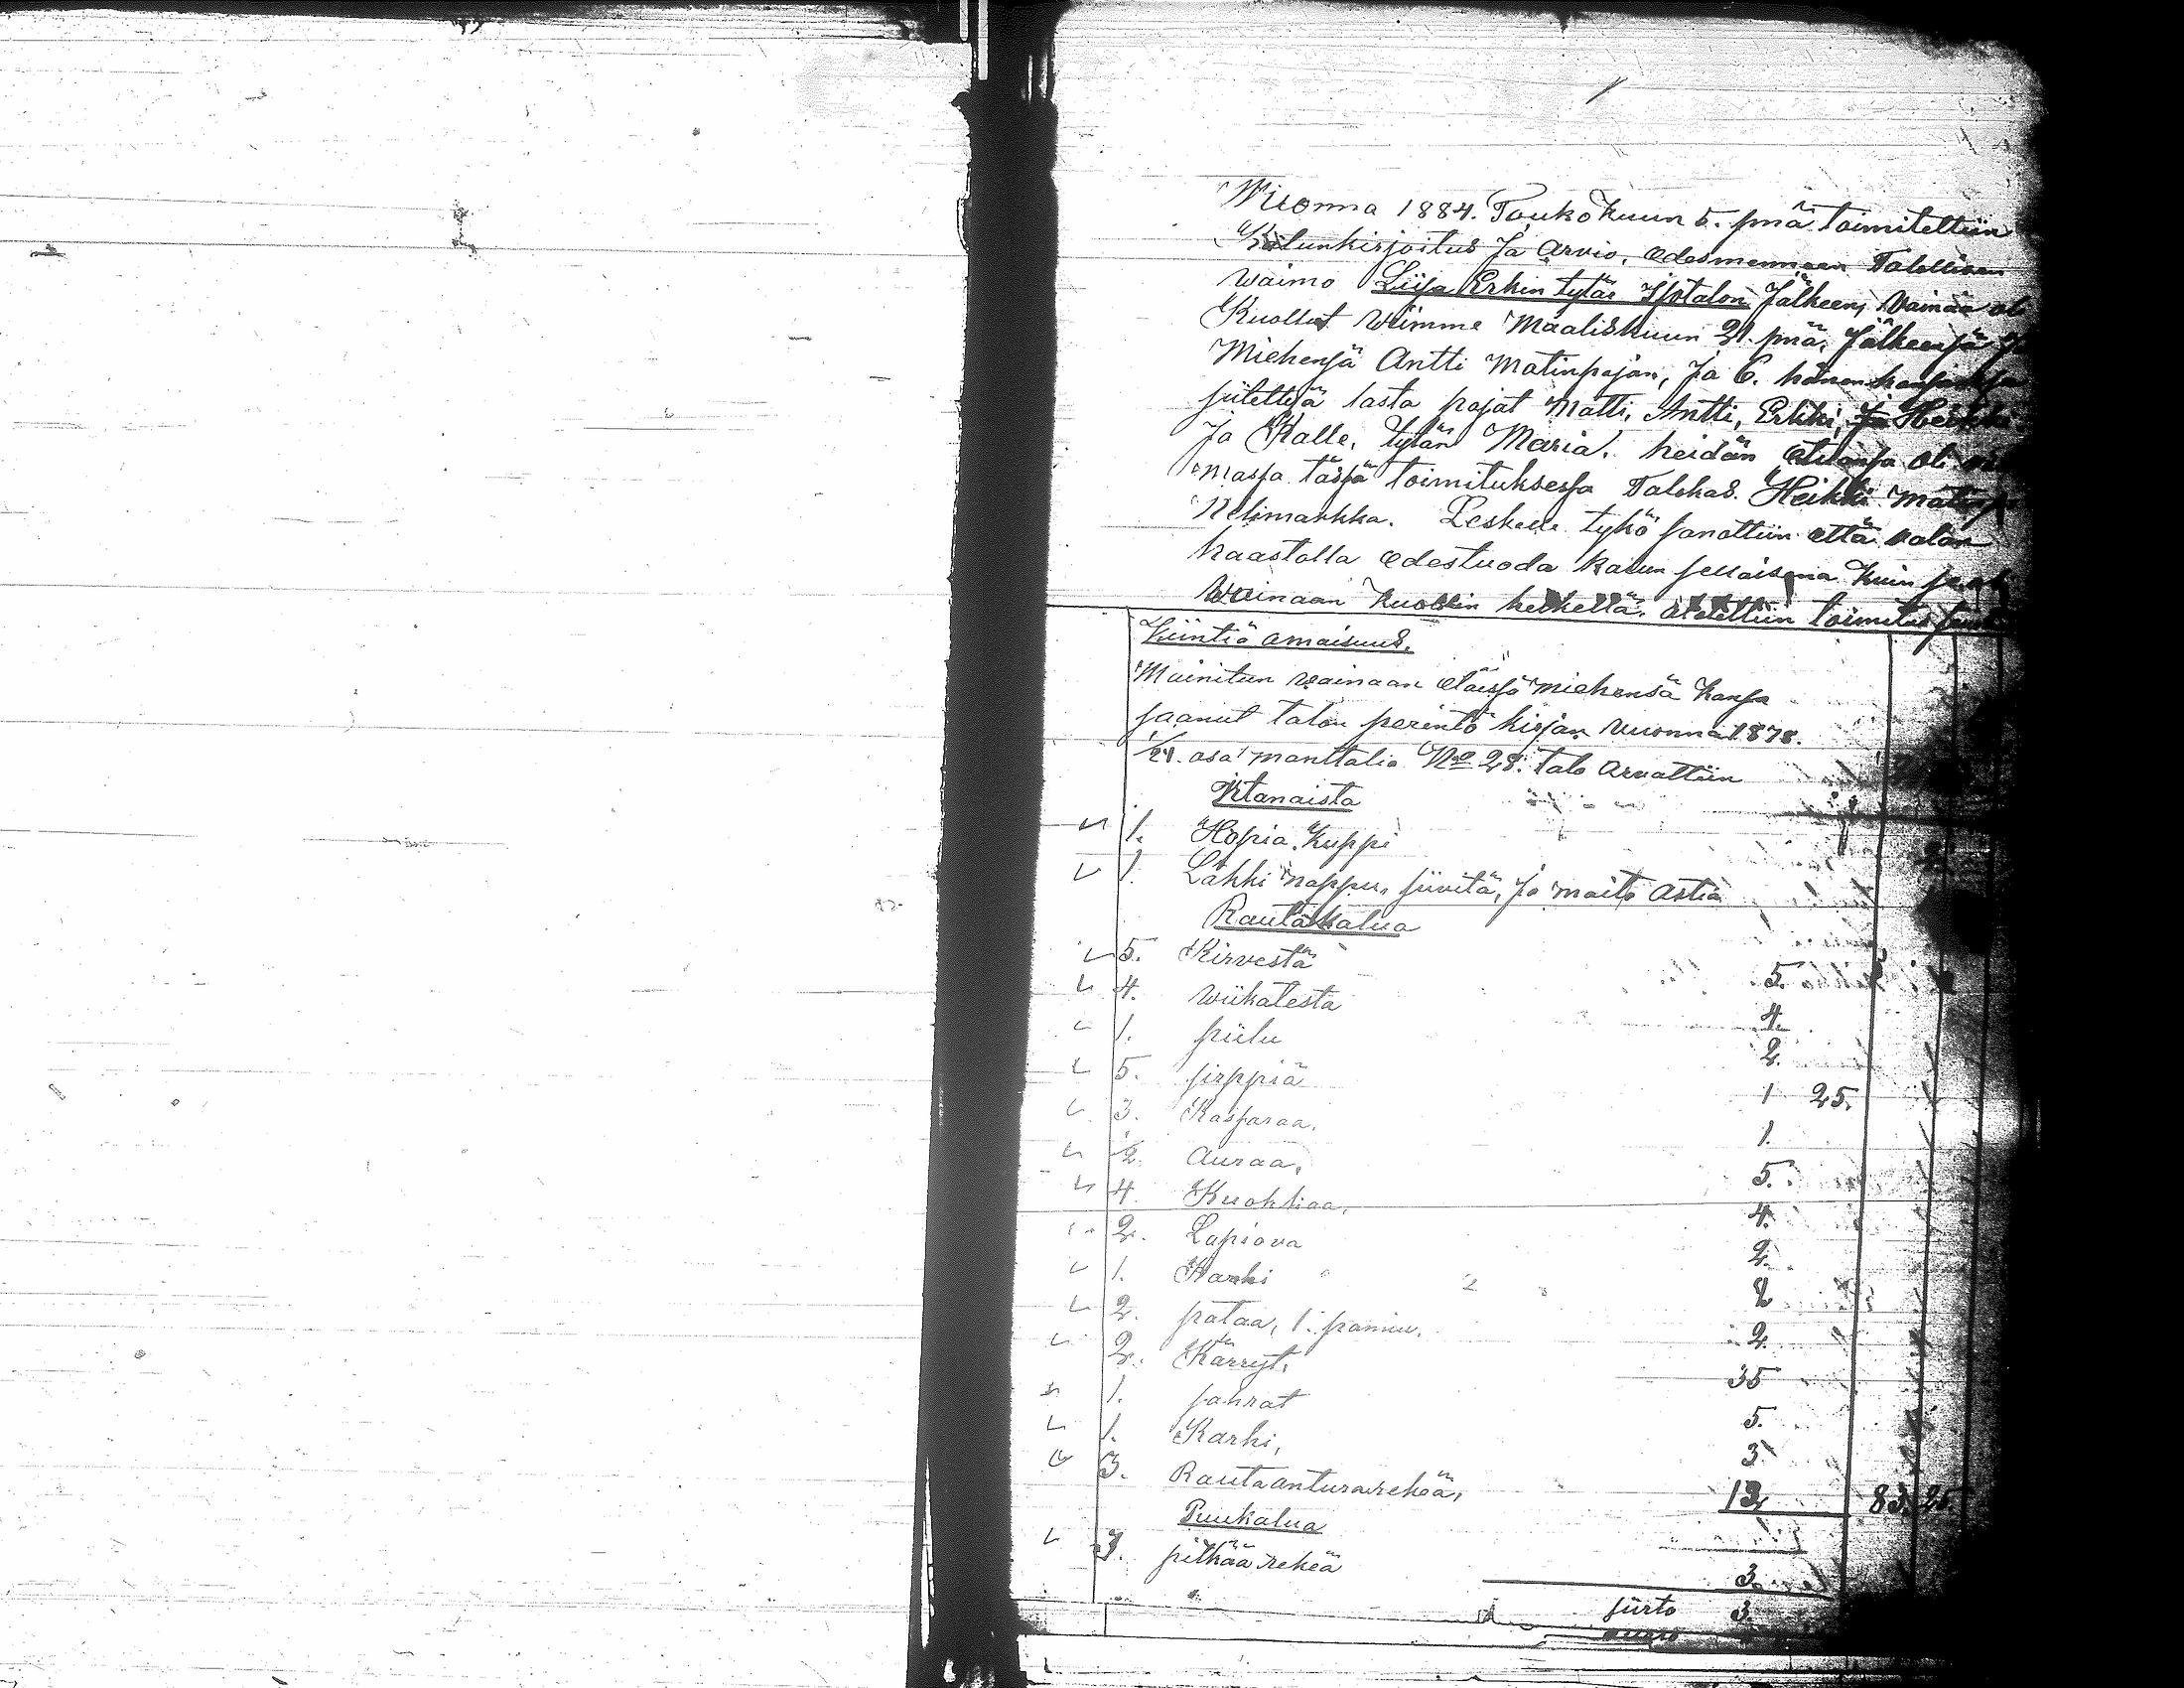 Wuonna 1884. Toukokuun 5. pnä toimitettiin
Kalunkirjoitus Ja Arvio, edesmenneen Talollisen
waimo Liisa Erkin tytär Isotalon Jälkeen, Vainaa oli
Kuollut viimme Maaliskuun 21. pnä, Jälkeensä
Miehensä Antti Matinpojan, Ja 6. hänen kansansa
siitettyä lasta pojat Matti, Antti, Erkki, Ja Heikki
Ja Kalle, tytär Maria. heidän etuansa oli
massa tässä toimituksessa Talokas. Heikki Matinp
Nelimarkka. Lesken tykö sanottiin että valan
haastolla edestuoda kalun sellaisena kuin se oli
Wainaan kuollin hetkellä. aletettiin toimitus
Kiintiä omaisuus.
Mainitun vainaan eläissä miehensä kansa
saanut talon perintö kirjan vuonna 1878.
1/24. osa manttalia No 28. talo Arvattiin
Irtanaista
1. Hopia Kuppi
1. Läkki nappu, siivitä, Ja maito Astia
Rautakalua
5. Kirvestä 5.
4. Wiikatesta 4.
1. piilu 2.
5. sirppiä 1 25.
3. Kassaraa. 1.
2. Auraa, 5.
4. Kuokkaa, 4.
2. Lapiova 2.
1. Harki 2
2. pataa, 1. pannu. 2.
2. Kärryt, 35
1. sahrat 5.
1. Karhi, 3
3. Rautaanturarekeä, 12 83 25
Puukalua
3. pitkää rekeä 3.
siirto 3.